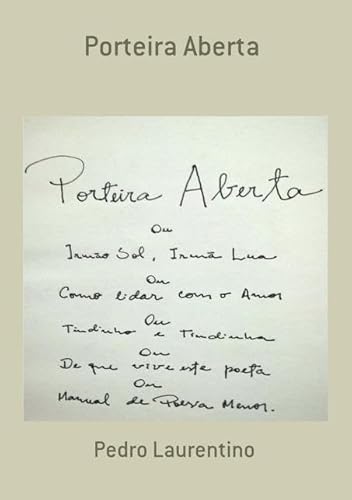 Porteira Aberta
Porteira Aberta
Ou
Irmão Sol, Irmã Lua
Ou
Como lidar com o Amor
Ou
Tindinho e Tindinha
Ou
De que vive este poeta
Ou
Manual de Poesia Menor.
Pedro Laurentino